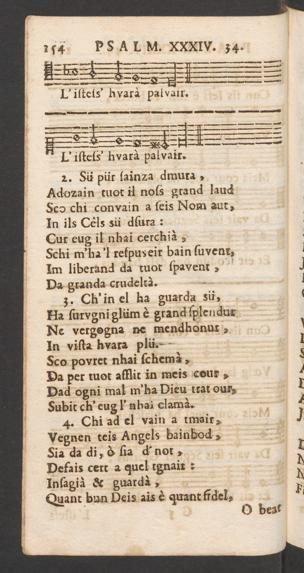 154 PSALM. XXXIV. 34.
L' istess' hvarà palvair.
L' istess' hvarà palvair.
2. Sü pür sainza dmura,
Adozain tuot il noss grand laud
Sco chi convain a seis Nom aut,
In ils Cêls sü dsura:
Cur eug il nhai cerchià,
Schi m'ha'l respus eir bain suvent,
Im liberand da tuot spavent,
Da granda crudeltà.
3. Ch'in el ha guarda sü,
Ha survgni glüm è grand splendur
Ne vergogna ne mendhonur,
In vista hvara plü.
Sco povret nhai schemà,
Da per tuot afflit in meis cour,
Dad ogni mal m'ha Dieu trat our,
Subit ch'eug l' nhai clamà.
4. Chi ad el vain a tmair,
Vegnen teis Angels bainbod,
Sia da di, ò sia d'not,
Defais cert a quel tgnair:
Insagià & guardà,
Quant bun Deis ais è quant fidel,
O beat